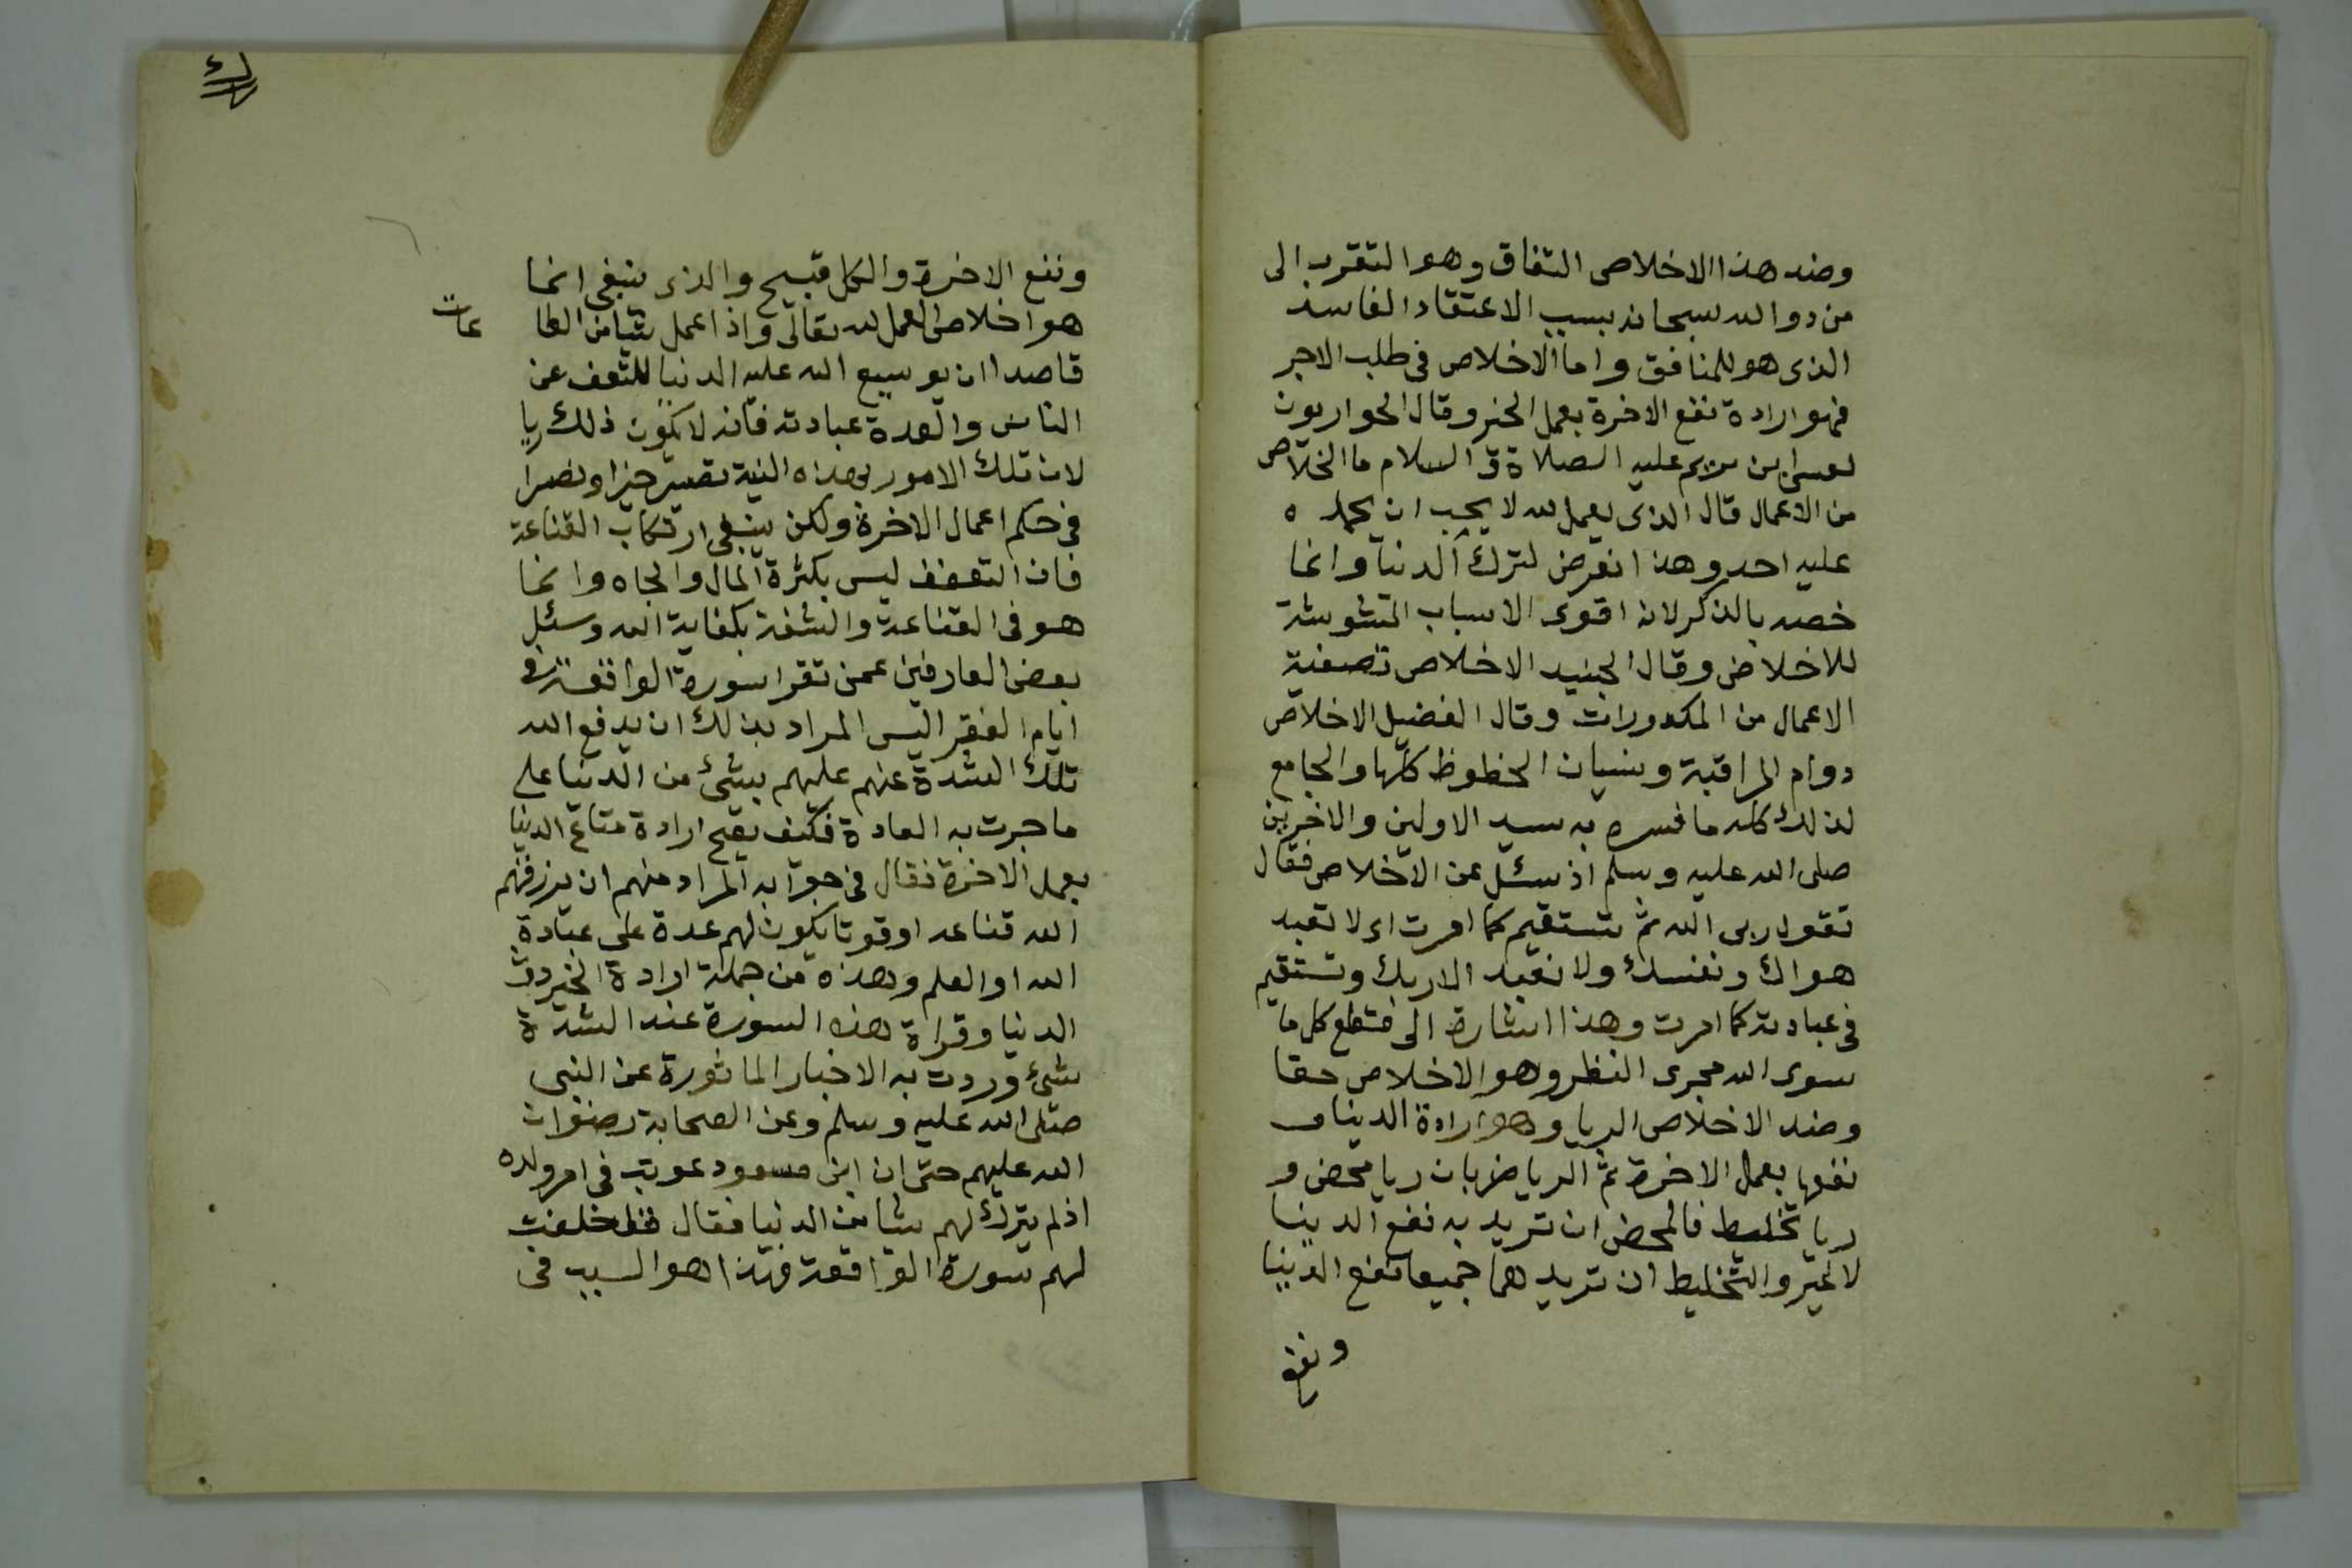 وضد هذا الاخلاص النفاق وهو التقرب الى
من دو الله سبحانه بسبب الاعتقاد الفاسد
الذى هو للمنافق واما الاخلاص فى طلب الاجر
فهو ارادة نفع الاخرة بعمل الخير وقال الحواريون
لعيسى ابن مريم عليه الصلاة و السلام ما الخلاص
من الاعمال قال الذى يعمل لله لا يحب ان يحمده
عليه احد وهذا تعرض لترك الدنيا وانما
خصه بالذكر لانه اقوى الاسباب المشوشة
للاخلاص وقال الجنيد الاخلاص تصفية
الاعمال من المكدورات وقال الفضيل الاخلاص
دوام المراقبة ونسيان الحظوظ كلها والجامع
لذلك كله ما فسره به سيد الاولين والاخرين
صلى الله عليه وسلم اذ سئل عن الاخلاص فقال
تقول ربى الله ثم تستقيم كما امرت اى لا تعبد
هواك ونفسك ولا تعبد الا ربك وتستقيم
فى عبادته كما امرت وهذا اشارة الى قطع كل ما
سوى الله مجرى النظر وهو الاخلاص حقا
وضد الاخلاص الريا وهو ارادة الدنيا و
نفعها بعمل الاخرة ثم الريا ضربان ريا محض و
ريا تخليط فالمحض ان تريد به نفع الدنيا
لا غير والتخليط ان تريد هما جميعا نفع الدنيا
ونفع
ونفع الاخرة والكل قبيح والذى ينبغى انما
هو اخلاص العمل لله تعالى واذا عمل شيا من الطا عات
قاصدا ان يوسيع الله عليه الدنيا للتعف عن
الناس والعدة عبادته فانه لا يكون ذلك ريا
لان تلك الامور بهذه النية تصير خيرا وتصير
فى حكم اعمال الاخرة ولكن ينبغى ارتكاب القناعة
فان التعفف ليس بكثرة المال والجاه وانما
هو فى القناعة والثقة بكفاية الله وسئل
بعض العارفين عمن تقرا سورة الواقعة فى
ايام الفقر اليس المراد بذلك ان يدفع الله
تلك الشدة عنهم عليهم بشئ من الدنيا على
ما جرت به العادة فكيف يصح ارادة متاع الدنيا
بعمل الاخرة فقال فى جوابه المراد منهم ان يرزقهم
الله قناعه او قوتا يكون لهم عدة على عبادة
الله او العلم وهذه من جملة ارادة الخير دون
الدنيا وقراة هذه السورة عند الشدة
شئ وردت به الاخبار الماثورة عن النبى
صلى الله عليه وسلم وعن الصحابة رضوان
الله عليهم حتى ان ابن مسعود عوتب فى امر ولده
اذ لم يترك لهم شيا من الدنيا فقال خلفت
لهم سورة الواقعة فهذا هو السبب فى